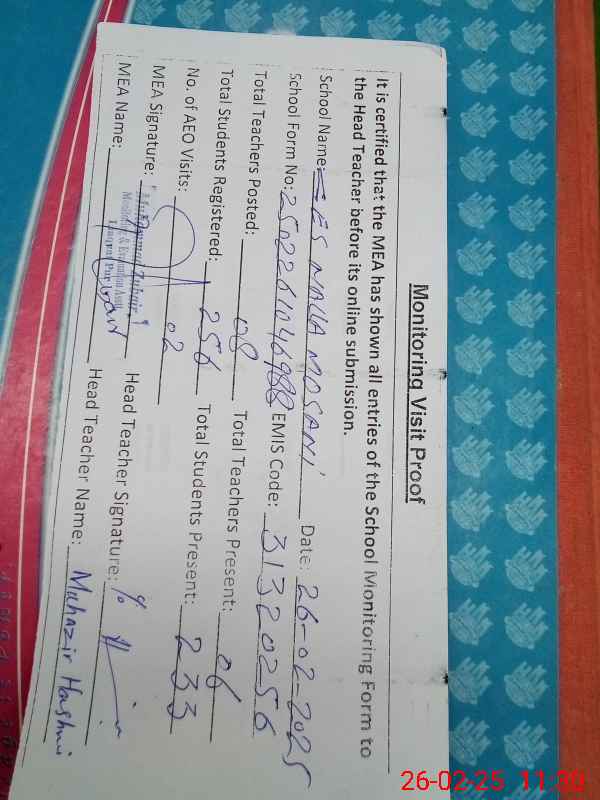 Monitoring Visit Proof
It is certified that the MEA has shown all entries of the School Monitoring Form to
the Head Teacher before its online submission.
School Name: GES NALLA MOSANI Date: 26-02-2025
School Form No: 250226104698 EMIS Code: 31320256
Total Teachers Posted: 08 Total Teachers Present: 06
Total Students Registered: 256 Total Students Present: 233
No. of AEO Visits: 02
MEA Signature: Head Teacher Signature: %
MEA Name: Head Teacher Name: Muhazir Hashmi
Muhammad Zubair
Monitoring & Evaluation Asstt.
26-02-25 11:30